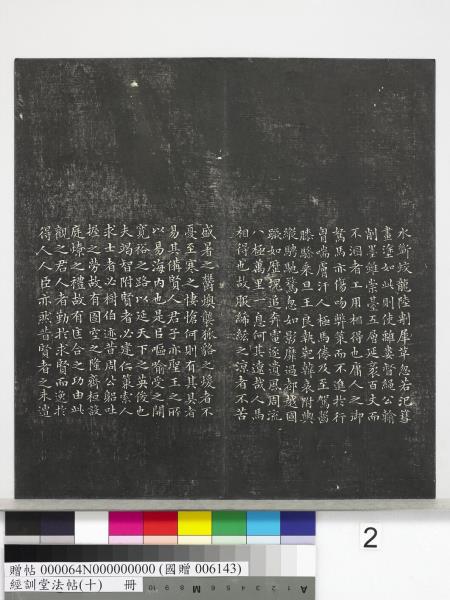 水斷蛟龍陸剸犀革忽若氾篲
畫塗如此則使離婁督繩公輸
削墨雖崇臺五層延袤百丈而
不溷者工用相得也庸人之御
駑馬亦傷吻弊策而不進於行
胷喘膚汗人極馬倦及至駕齧
膝驂乘旦王良執靶韓哀附輿
縱騁馳騖忽如影靡過都越國
蹶如歷塊追奔電逐遺風周流
八極萬里一息何其遼哉人馬
相得也故服絺綌之涼者不苦
盛暑之鬱燠襲狐貉之煖者不
憂至寒之悽愴何則有其具者
易其備賢人君子亦聖王之所
以易海內也是以嘔喻受之開
寬裕之路以延天下之英俊也
夫竭智附賢者必建仁策索人
求士者必樹伯迹昔周公躬吐
握之勞故有圄空之隆齊桓設
庭燎之禮故有匡合之功由此
觀之君人者勤於求賢而逸於
得人人臣亦然昔賢者之未遭
2
贈帖 000064N000000000 (國贈 006143)
經訓堂法帖(十) 冊